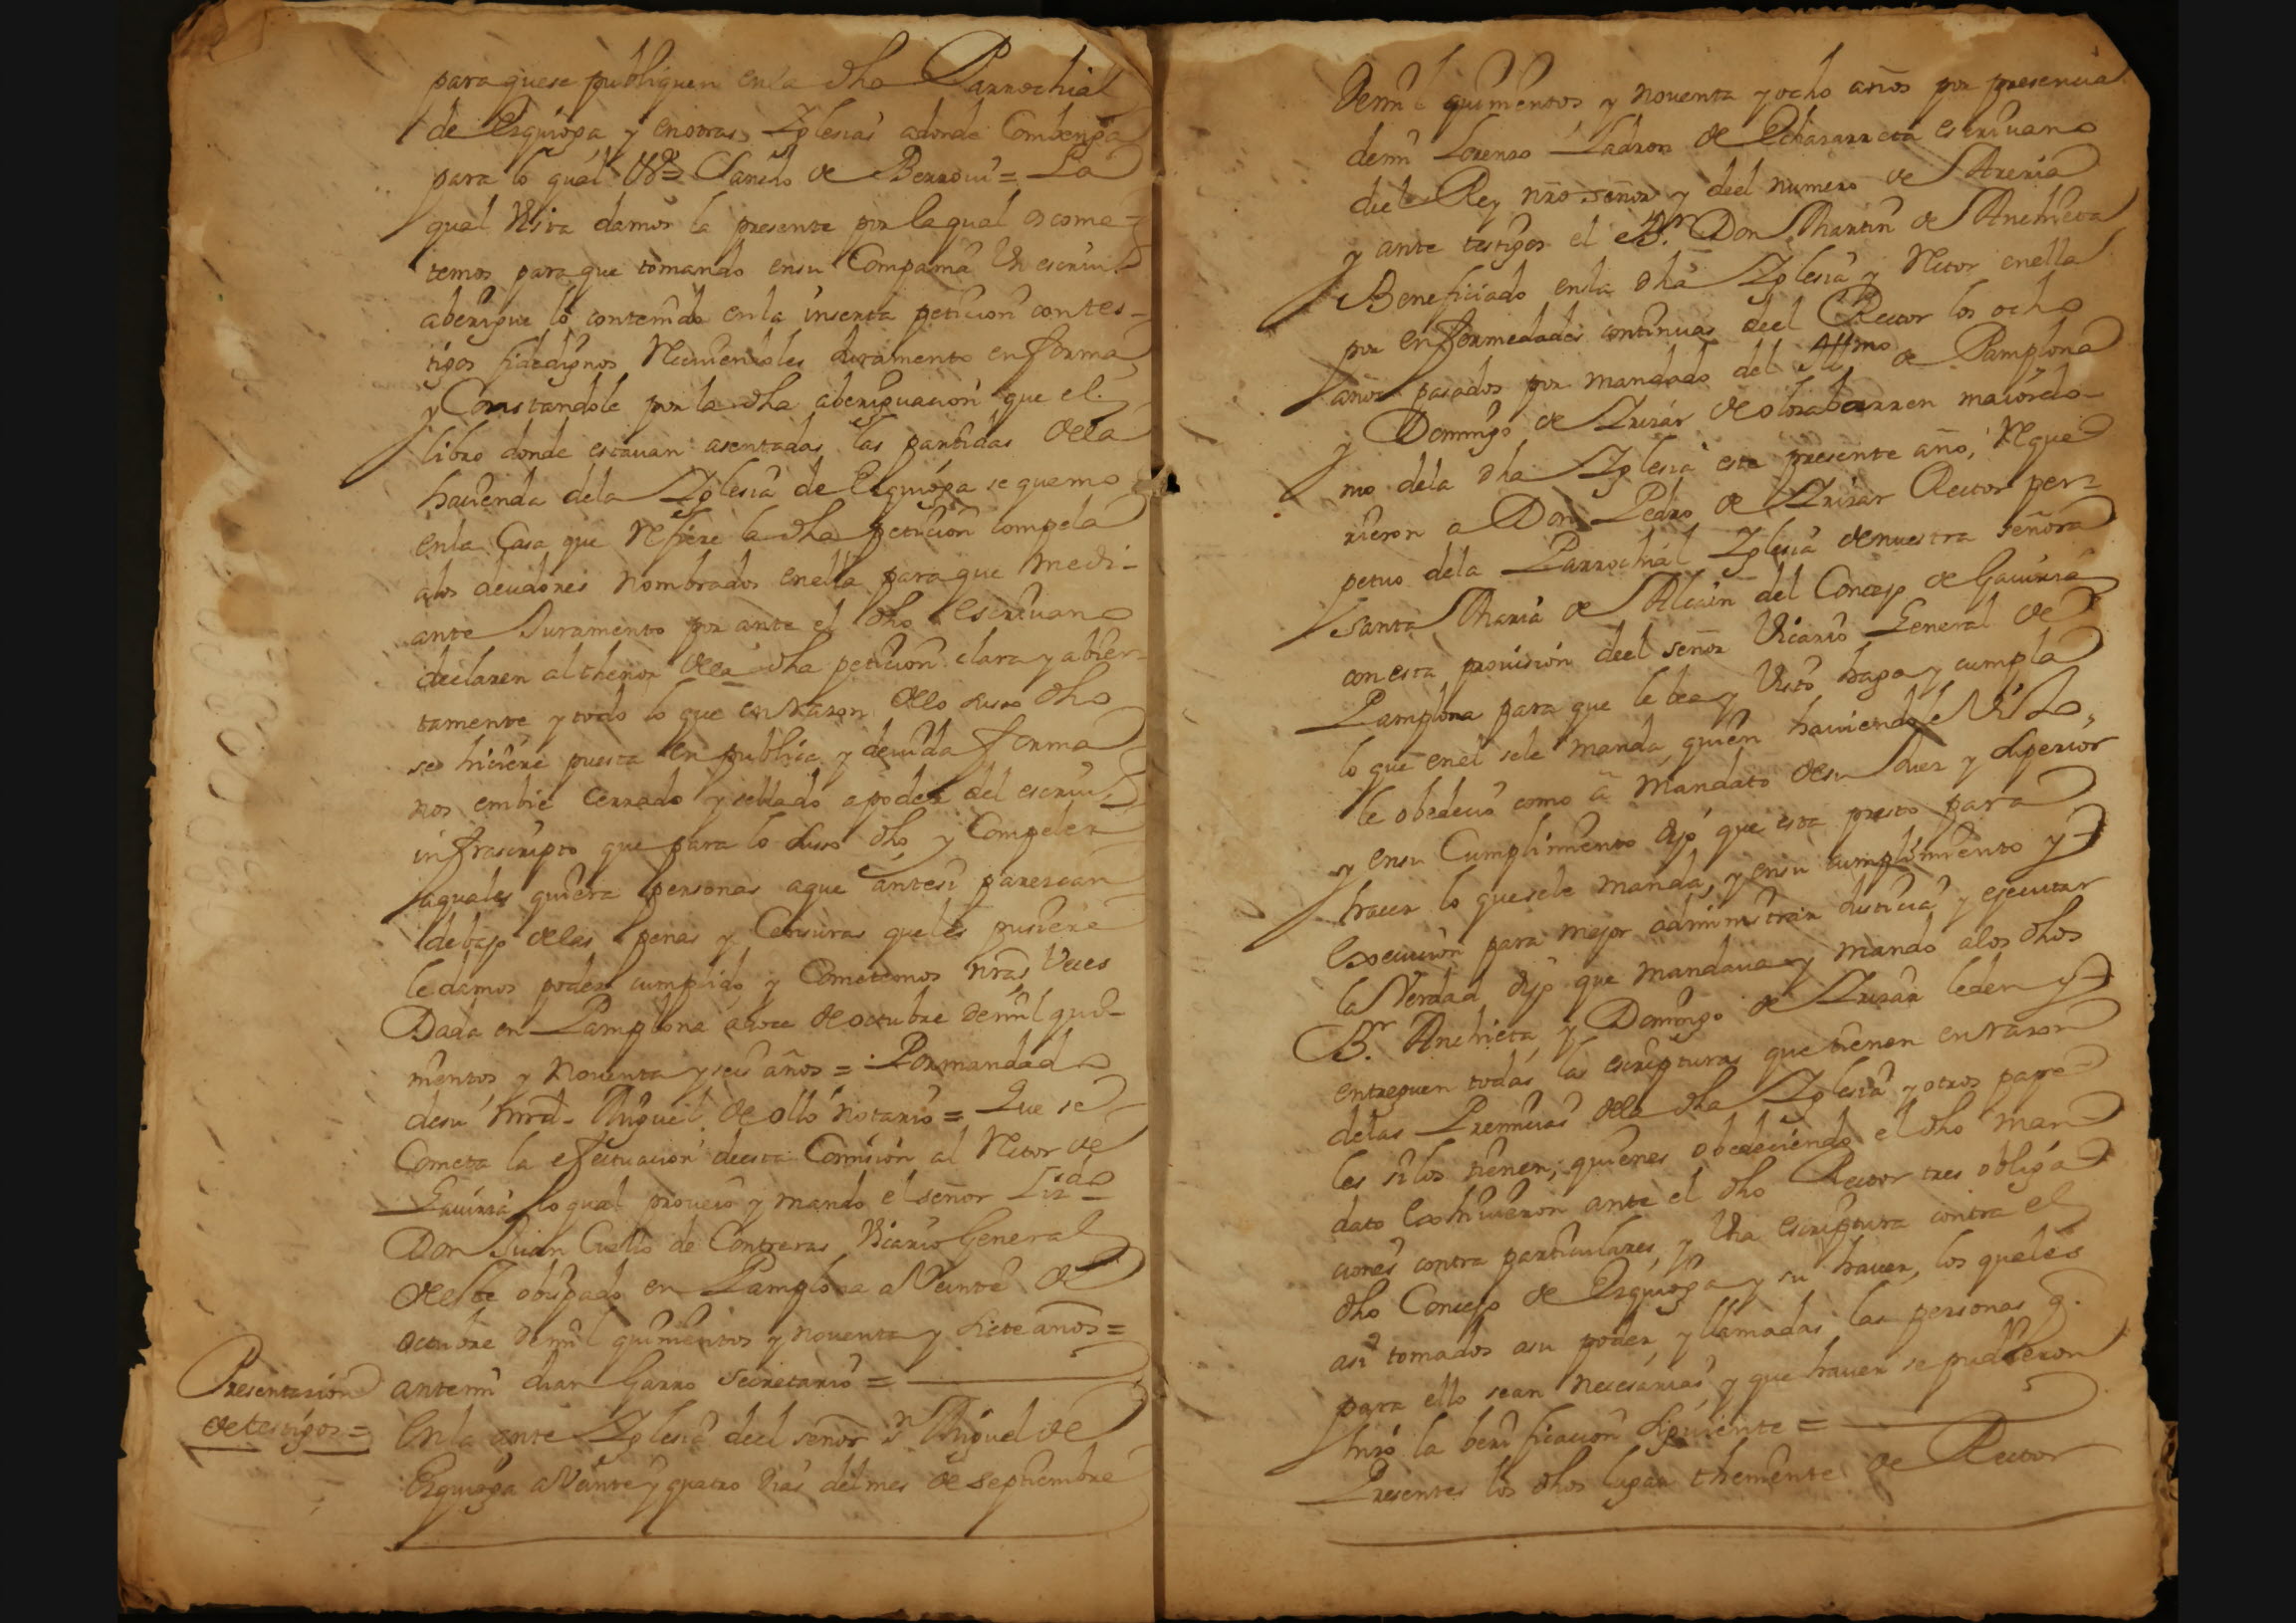 para que se publiquen en la dha Parrochial
de Ezquioga y en otras Iglesias adonde Combenga
para lo qual &ª Sancho de Berrovi = La
qual Vista damos la presente por la qual os come-
temos para que tomando en su Compamia Un escriu.º
aberigue lo contenido en la inserta peticion con tes-
tigos fidedignos Reciuiendoles Juramento en forma
y Constandole por la dha aberiguacion que el
libro donde estauan asentadas las partidas dela
hacienda dela Iglesia de Ezquioga se quemo
en la Casa que Refiere la dha peticion compela
alos deudores nombrados en ella para que medi-
ante Juramento por ante el dho escriuano
declaren al thenor dela dha peticion clara y abier-
tamente y todo lo que en razon delo suso dho
se hiciere puesta en publica y deuida forma
nos embie cerrado y sellado a poder del escriu.º
infrascripto que para lo suso dho y Compeler
a quales quiera personas a que ante si parezcan
debajo delas penas y Censuras que les pusiere
le damos poder cumplido y Cometemos nras Veces
Dada en Pamplona a doce de octubre de mil qui-
nientos y Noventa y seis años = Por mandado
de su mrd - Miguel de ollo notario = Que se
Cometa la efectuacion de esta Comision al Retor de
Gauiria lo qual proueio y mando el señor Lizdo
Don Juan Cuello de Contreras Vicario General
de este obispado en Pamplona a Veinte de
octubre de mil quinientos y noventa y siete años =
ante mi Juan Garro Secretario =
Presentazion
de testigos =
En la ante Iglesia deel señor Sn Miguel de
Ezquioga a Veinte y quatro dias del mes de septiembre
de mil quinientos y noventa y ocho años por presencia
de mi Lorenzo Ladron de Echazarreta escriuano
deel Rey nro señor y deel numero de Areria
y ante testigos el Br. Don Martin de Anchieta
Beneficiado en la dha Iglesia y Retor en ella
por enfermedades continuas deel Rector los ocho
años pasados por mandado del Illmo de Pamplona
y Domingo de Irizar de olozabarren maiordo-
mo dela dha Iglesia este presente año, Reque
rieron a Don Pedro de Irizar Rector per-
petuo dela Parrochial Iglesia de nuestra señora
santa Maria de Alcain del Concejo de Gauiria
con esta prouision deel señor Vicario General de
Pamplona para que le bea y Visto haga y cumpla
lo que en el se le manda, quien hauiendole Visto,
le obedecio como a mandato de su Juez y superior
y en su Cumplimiento dijo que esta presto para
hacer lo que se le manda, y en su cumplimiento y
execucion para mejor administrar Justicia y ejecutar
la Verdad dijo que mandaua y mando alos dhos
Br. Anchieta y Domingo de Irizar le den y
entreguen todas las escripturas que tienen en razon
delas Premicias dela dha Iglesia y otros pape-
les si los tienen; quienes obedeciendo el dho man
dato Exhiuieron ante el dho Rector tres obliga
ciones contra particulares, y Una escriptura contra el
dho Concejo de Ezquioga y su hauer, los queles
asi tomados a su poder, y llamadas las personas q.
para ello sean necesarias y que hauer se pudieron
hizo la berificacion siguiente =
Presentes los dhos lugar theniente de Rector